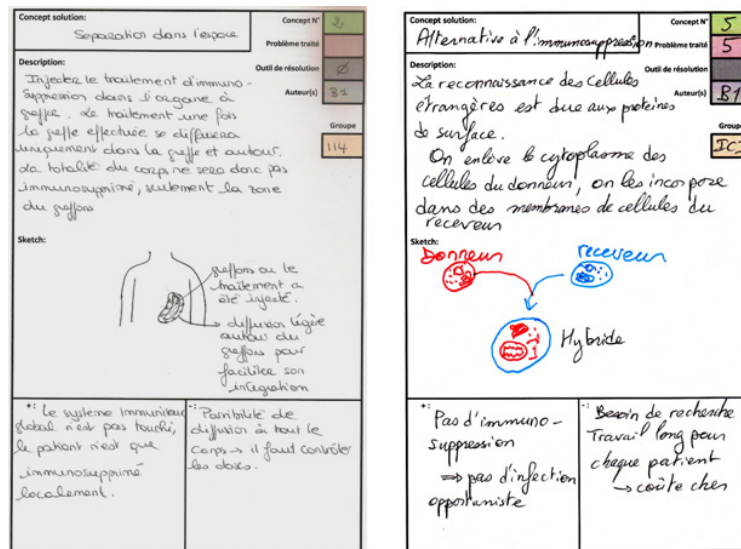 Concept solution:
Separation dans l'espace
Concept N° 2
Problème traité
Outil de résolution Ø
Auteur(s) B1
Groupe
114
Description:
Injecter le traitement d'immuno-
suppression dans l'organe à
greffer. Le traitement une fois
la greffe effectuée se diffusera
uniquement dans la greffe et autour.
La totalité du corps ne sera donc pas
immunosupprimé, seulement la zone
du greffons
Sketch:
greffons ou le
traitement a
été injecté.
→ diffusion légère
autour du
greffons pour
faciliter son
intégration
+: Le système immunitaire
global n'est pas touché,
le patient n'est que
immunosupprimé
localement.
-: Possibilité de
diffusion à tout le
corps → il faut contrôler
les doses.
Concept solution:
Alternative à l'immunosuppression
Concept N° 5
Problème traité 5
Outil de résolution
Auteur(s) B1
Group
Description:
La reconnaissance des cellules
étrangères est due aux protéines
de surface.
On enlève le cytoplasme des
cellules du donneur, on les incorpore
dans des membranes de cellules du
receveur
Sketch:
Donneur
receveur
Hybride
+:
Pas d'immuno-
suppression
⇒ pas d'infection
opportuniste
-: Besoin de recherche
Travail long pour
chaque patient
→ coûte cher